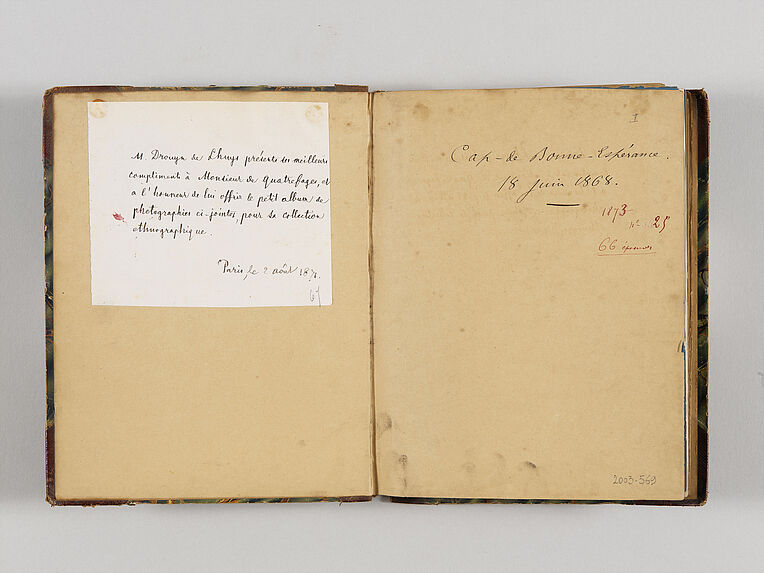 M. Drouyn de Lhuys présente ses meilleurs
compliments à Monsieur de Quatrefages, et
a l'honneur de lui offrir le petit album de
photographies ci-jointes, pour sa collection
ethnographique.
Paris, le 2 août
I
Cap-de Bonne-Espérance.
18 juin 1868.
1873
nº 25
66 épreuves
2003-569